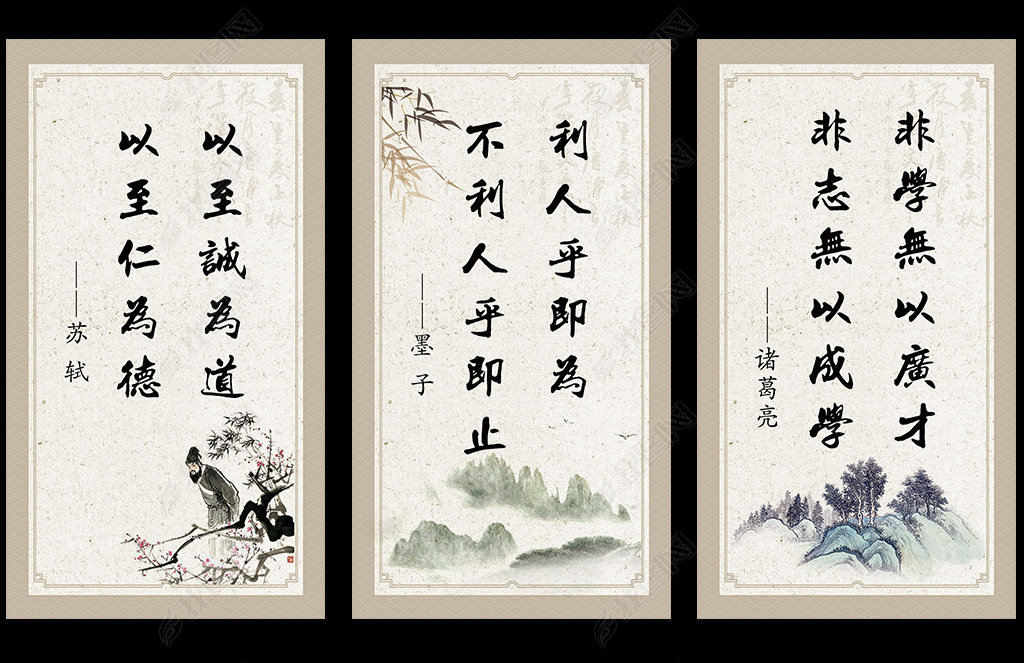 以至誠為道
以至仁為德
——苏轼
利人乎即為
不利人乎即止
——墨子
非學無以廣才
非志無以成學
——诸葛亮